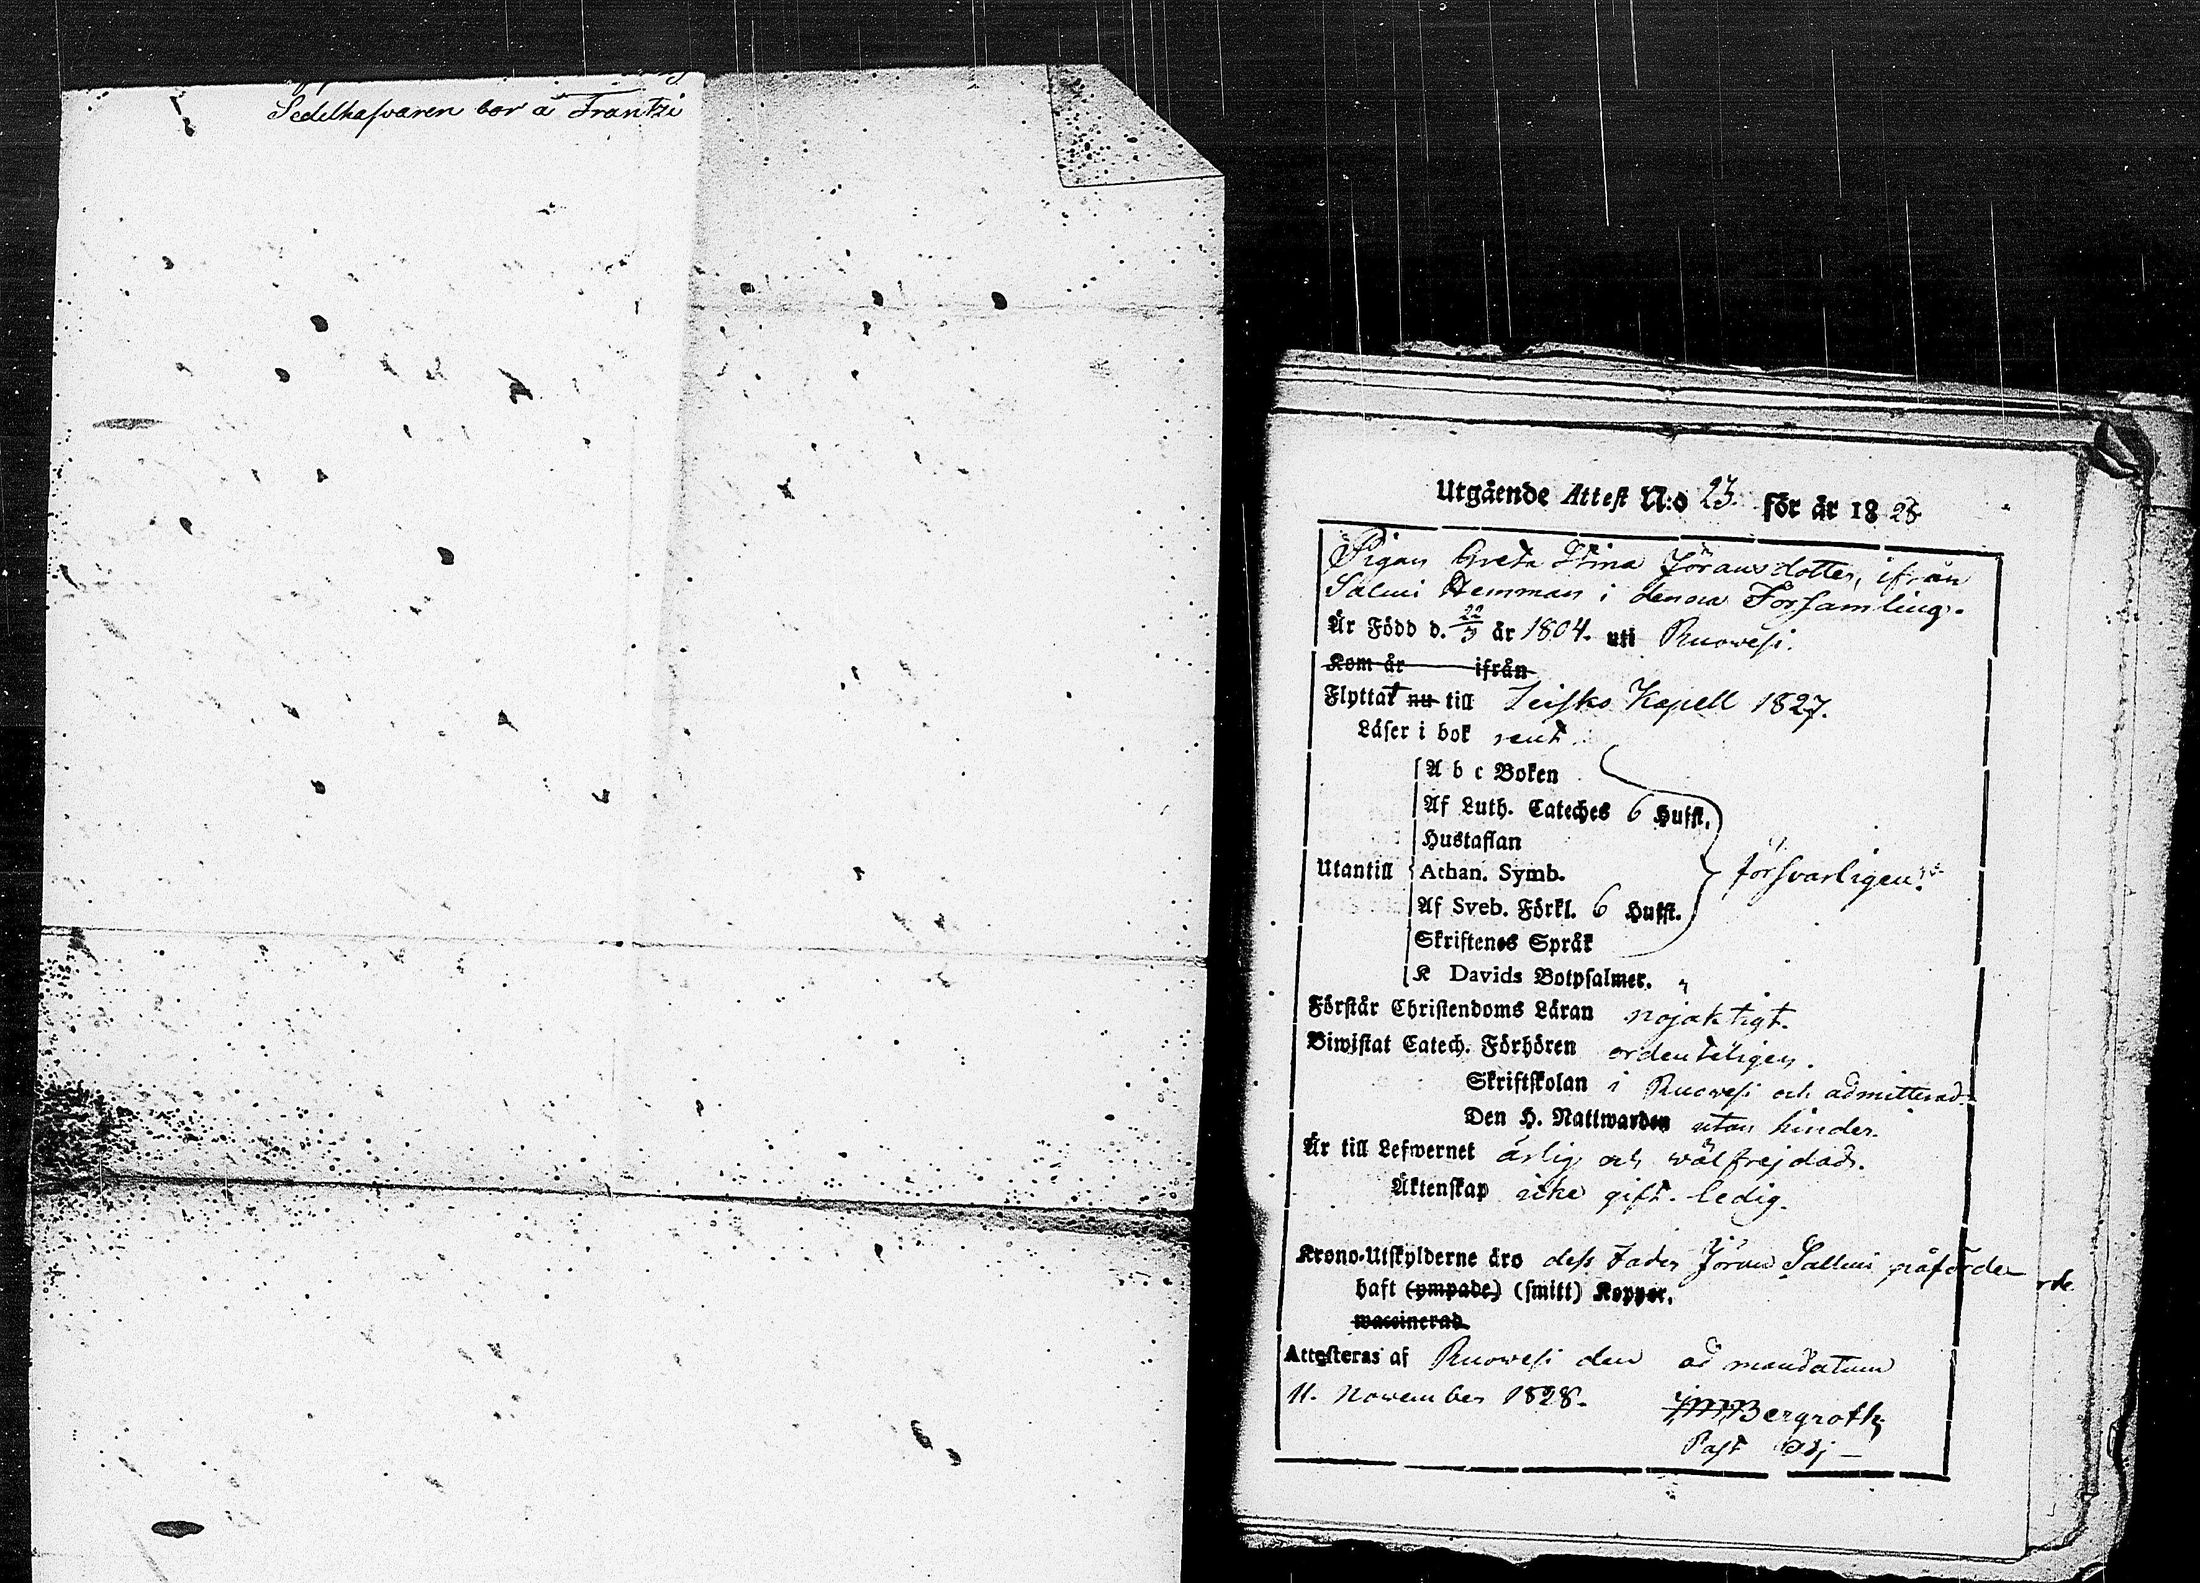 Sedelhafvaren bor å Frantzi
Utgående Attest N:o 23. för år 1828
Pigan Greta Stina Jöransdotter, ifrån
Salmi Hemman i denna Församling.
Är Född d. 22/3 år 1804. uti Ruowesi.
Kom år ifrån
Flyttat nu till Teisko Kapell 1827.
Läser i bok rent
A b c Boken
Af Luth. Cateches 6 Hufst.
Hustaflan
Utantill Athan. Symb. försvarligen
Af Sveb. Förkl. 6 Hufst.
Skriftenes Språk
K Davids Botpsalmer.
Förstår Christendoms Läran nöjaktigt.
Biwistat Catech. Förhören ordenteligen.
Skriftskolan i Ruowesi och admitterad.
Den H. Nattwarden utan hinder.
Är till Lefwernet ärlig och wälfrejdad.
Äktenskap icke gift. ledig.
Krono-Utskylderne äro dess Fader Jöran Salmi påförde
haft (ympade) (smitt) Koppor.
waccinerad
Attesteras af Ruowesi den ad mandatum
11. November 1828. Bergroth
Past Adj